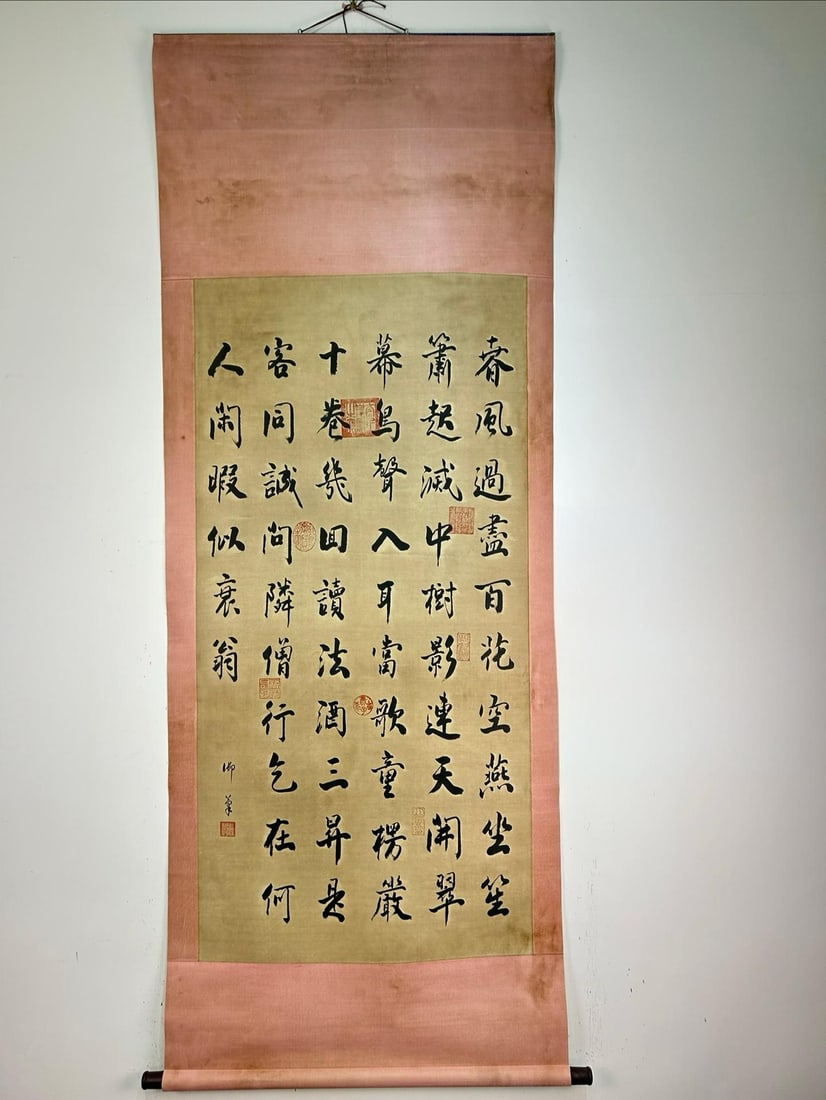 春風過盡百花空燕坐笙
簫起滅中樹影連天開翠
幕鳥聲入耳當歌童楞嚴
十卷幾回讀法酒三昇是
客同誠問隣僧行乞在何
人閑暇似衰翁
御筆